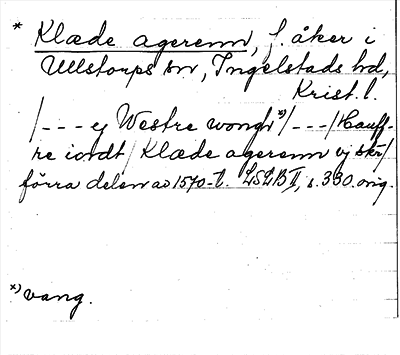 * Klæde agerenn, f. åker i
Ullstorps sn, Ingelstads hd,
Krist. l.
/--- ej Westre wongr *)/---/Hauff-
re iordt/ Klæde agerenn vj skr/
förra delen av 1570-t. LSLB II, s. 330. orig.
*) vang.